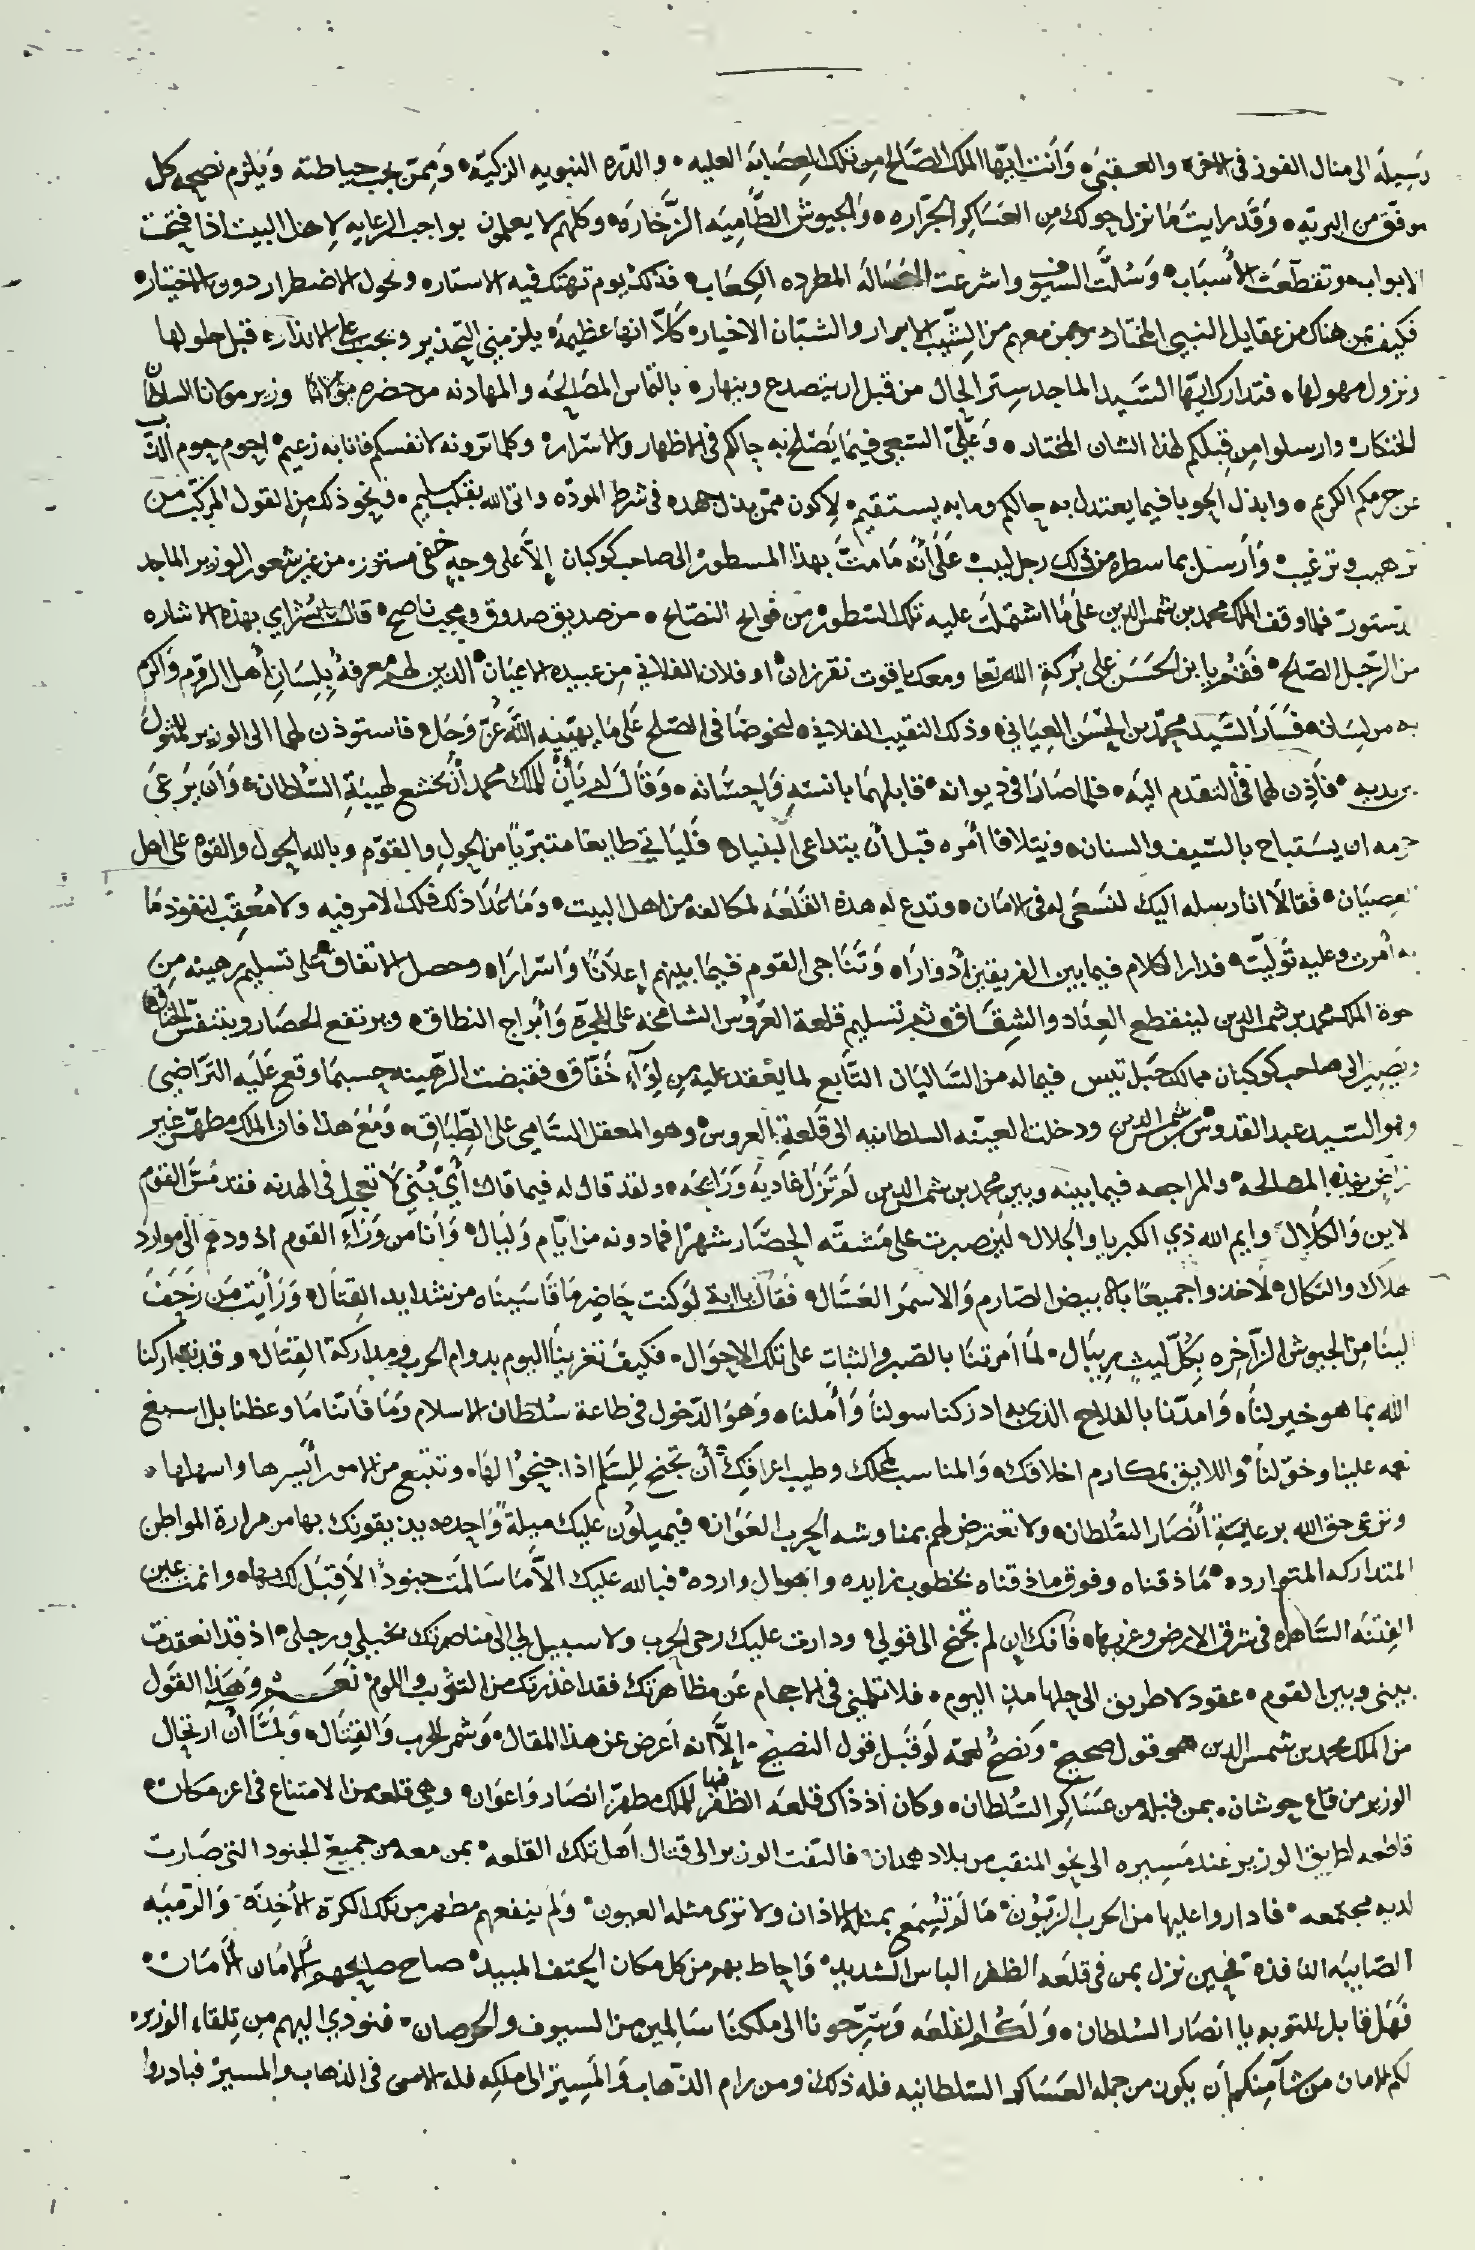 وسيلة الى منال الفوز فى الاخره والعقبى وَأنت ايّها الملك الصَالح من تلك العِصَابَة العليه والدّره النبويه الزكيّه وَممّن يجب حياطته وَيلزم نصحه كل
موفّق من البريّه وَقَد رايت مَا نزل حولك مِن العَسَاكِر الجرّاره وَالجيوش الطّامِيَه الزّخاره وكلهم لا يعلمون بواجب الرعايه لاهل البيت اذا فتحت
الابواب وتقطّعَت الأسبَاب وَسُلّت السيوف واشرعت العسّالة المطرده الكِعَاب فذلك يوم تهتك فيه الاستاره وتحول الاضطرار دون الاختيار
فكيف بمن هناك من عقايل النبيى المختار وبمن معهم من الشِيب الابرار والشبّان الاخيار كلّا انها عظيمة يلزمنى التحذير ويجب على الانذار قبل حلولها
ونزول مهولها فتدارك ايّها السَّيد الماجد سِتر الحال من قبل ان يتصدع وينهار بالتماس المصَالحَه والمهادنه من حضره مولانا وزير مولانا السلطان
الخنكار وارسلوا من قِبلكم لهذا الشان المختار وَعليّ السّعي فيمَا يَصْلح به حالكم فى الاظهار والاسرار وكلما ترونه لانفسكم فانا به زعيم احوم حوم الذبّ
عن حرمكم الكريم وابذل الحوبا فيما يعتدل به حالكم وما به يستقيم لاكون ممّن بذل جهده فى شرط المودّه واتى الله بقلب سليم ونحو ذلك مِن القول المركّب من
ترهيب وترغيب وَأرسل بما سطره من ذلك رجل لبيب عَلَى أنّه مَا متّ بهذا المسطور الى صاحب كوكبان إلاّ على وجهٍ خفى مستور من غير شعور الوزير الماجد
الدستور فلما وقف الملك محمد بن شمس الدين علَى مَا اشتملت عليه تلك السطور من فوايح النصَايح من صديق صدوق ومحب ناصح قال بهذه الاشاره
من الرّجل الصّالح فَقُم يا بن الحَسَن على بَركةِ الله تعا ومعك ياقوت نقرزان او فلان الفلاني مِن عبيده الاعيَان الذين لهم معرفةٌ بِلِسَانِ أهل الروم وَاكرم
به من لِسَان فسَارَ السَّيد محمّد بن الحسَن العيانى وذلك النقيب الفلانى ليخوضَا فى الصّلح عَلى مَا يهيّنه الله عزّ وَجَل فاستوذن لهما الى الوزير للمثول
بين يديه فأذِن لهما فى التقدم اليَه فلما صَارَا فى ديوانه قابلهمَا بانسَهِ وَإحسَانه وَقالَ لم يَأنْ للملك محمد أنْ يخشع لهيبَةِ السّلطان وَأن يَرعى
حرمه ان يسَتباح بالسّيف والسنان ويتلافا أمره قبل أنْ يتداعى البنيان فَليَاتي طايعًا متبرّيًا من الحول والقوّه وبالله الحول والقوه على اهل
العصيَان فقالا انا رسله اليك لنَسعَى له فى الامَان وتدع له هذه القَلعَه لمكانه من اهل البيت وَمَا عَدَا ذلك فلك الامر فيه ولا معقِب لنفوذ مَا
به أمرت وعليه تَوليّت فدار الكلام فيما بين الفريقين أدوارَا وَتنَاجى القوم فيمَا بينهم إعلانًا وَاسرَارَا وحصل الاتفاق على تسليم رهينه مِن
الملك محمد بن شمس الدين لينقطع العِنَاد والشِقَاق ثم تسليم قلعة العرُوس الشامخه على المجرّه وَأبراج النطاق ويرتفع الحصَار ويتنفسّ الخناق
وَيَصير الى صاحب كوكبان ممالك جَبل تيس فيما له من السّاليان التّابع لما يعقد عليه من لِوَآءٍ خَفّاق فقبضت الرّهينه حسبما وقع عَلَيه التَرّاضى
وهو السّيد عبد القدوس بن شمس الدين ودخلت العينه السلطانيه الى قلعة العروس وهو المعقل السّامي على الطِبَاق وَمَع هَذا فان الملك مطهّر غير
رَاضٍ بهذه المصالحه والمراجعه فيما بينه وبين محمد بن شمس الدين لَم تزل غاديَه وَرَايحَه ولقد قال له فيما قال أيْ بُنيّ لا تعجل فى الهدنه فقد مسّ القوم
الاين وَالكَلال وايم الله ذي الكبريا وَالجَلال لَئِن صبرت على مَشقّه الحصَار شهرًا فما دونه من ايّام وَليَال وَأنا من وَرَآء القوم اذودهم الى موارد
الهلاك والنكال لاخذوا جميعًا بالابيض الصّارم وَالاسمر العسّال فقال يا ابه لَو كنت حَاضِر مَا قَاسينَاه من شدايد القِتال وَرَأيت مَن زحَفَ
الينا مِن الجيوش الزّاخِره بِكُلّ ليثٍ رِيبَال لمَا أمَرتنَا بالصّبر والثبات على تلك الاحوَال فكيف تغرينا اليوم بدوام الحرب ومداركة القِتال وقد تداركنا
الله بما هو خير لنا وَامدّنا بالفلاح الذي به ادركنا سولنَا وَأملنا وَهوَ الدّخول فى طاعة سُلطان الاسلام وَمَا فَاتنَا مَا وعظنا بل اسبغ
نعمه علينا وخوّلنا واللايق بمكارم اخلاقك وَالمناسب لمحلك وطيب اعراقك أن تجنح للسّلم اذا جنحُوا لهَا وتتبع من الامور أيسَرها واسهلها
وترعى حق الله برعَايَةِ أنصَار السّلطان ولا تعترض لهم بمناوشه الحرب العَوَان فيميلون عليك ميلةً وَاحده يذيقونك بها من مرارة المواطن
المتداركه المتوارده مَا ذقناه وفوق ما ذقناه بخطوب زايده واهوال وارده فبالله عليك الاّ مَا سَالَمت جنودًا لاقِبَل لك بها وانمت عين
الفِتنه السّاهره فى شرق الارض وغربها فانّك ان لم تجنح الى قولي ودارت عليك رحى الحرب ولا سبيل لي الى مناصرتك بخيلي ورجلي اذ قد انعقدت
بينى وبين القوم عقود لا طريق الى حلها مدى اليوم فلا تلمنى فى الاحجام عَن مظاهرتك فقد اعذرتك من التثريب واللوم نَعَم وَهَذَا القَول
من الملك محمد بن شمس الدين هو قول صحيح وَنصحٌ لعمّه لَو قَبل قول النصيح إلاَّ انه اعرض عن هذا المقال وَشمّر للحرب وَالقِتال وَلمّا آن ارتحال
الوزير من قاع حوشان بمن قبله من عسَاكِر السّلطان وكان اذ ذاك قلعَه الظفر فيها للملك مطهّر انصَار وَاعوَان وهي قلعه من الامتناع فى اعز مكان
قاطعه لطريق الوزير عند مسِيره الى نحو المنقب من بلاد همدان فالتفت الوزير الى قتال اهل تلك القلعه بمن معه من جميع الجنود التى صَارت
لديه مجتمعه فاداروا عليها من الحرب الزبُون مَا لَم تُسمَع بمثله الاذان ولا ترى مثله العيون وَلم ينفعهم مطهر من تلك الكرّة الأخِذَه وَالرّميَه
الصّابيَه النافذه فحين نزل بمن فى قلعَه الظفر الباس الشديد وَاحاط بهم من كل مكان الحتف المبيد صاح صايحهم الامَان الامَان
فَهَل قابل للتوبه يا انصَار السّلطان وَلَكُم القلعَه وَسَرّحونا الى ملكنا سَالمين من السيوف والخرصان فنودي اليهم مِن تِلقاء الوزير
لكم الامان من شآ منكم أن يكون من جمله العسَاكر السّلطانيه فله ذلك ومن رام الذّهاب وَالمسِير الى ملكِه فله الاسى فى الذهاب والمسير فبادروا